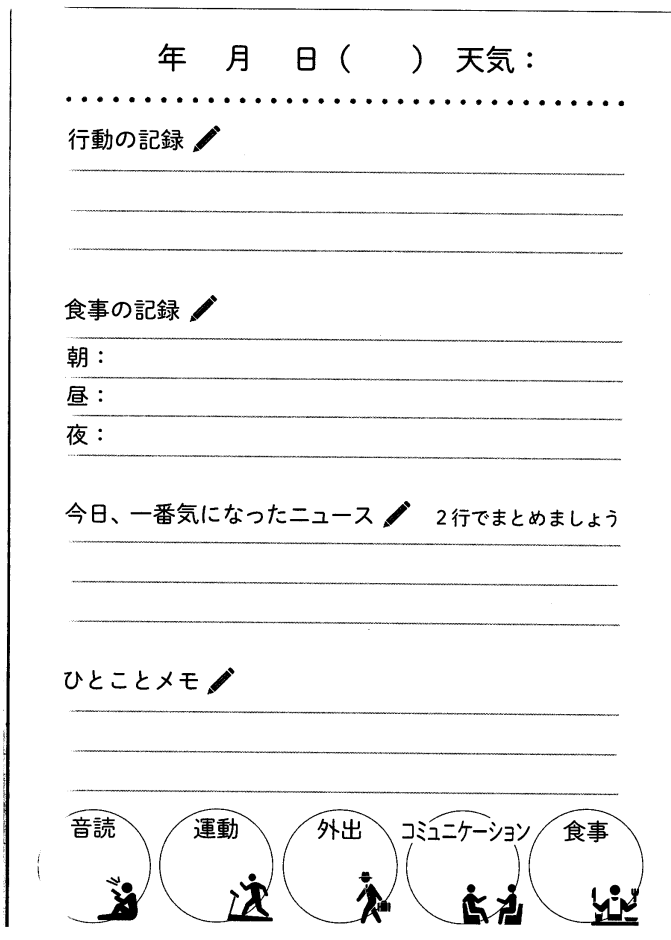 年 月 日（ ） 天気：
行動の記録
食事の記録
朝：
昼：
夜：
今日、一番気になったニュース 2行でまとめましょう
ひとことメモ
音読 運動 外出 コミュニケーション 食事